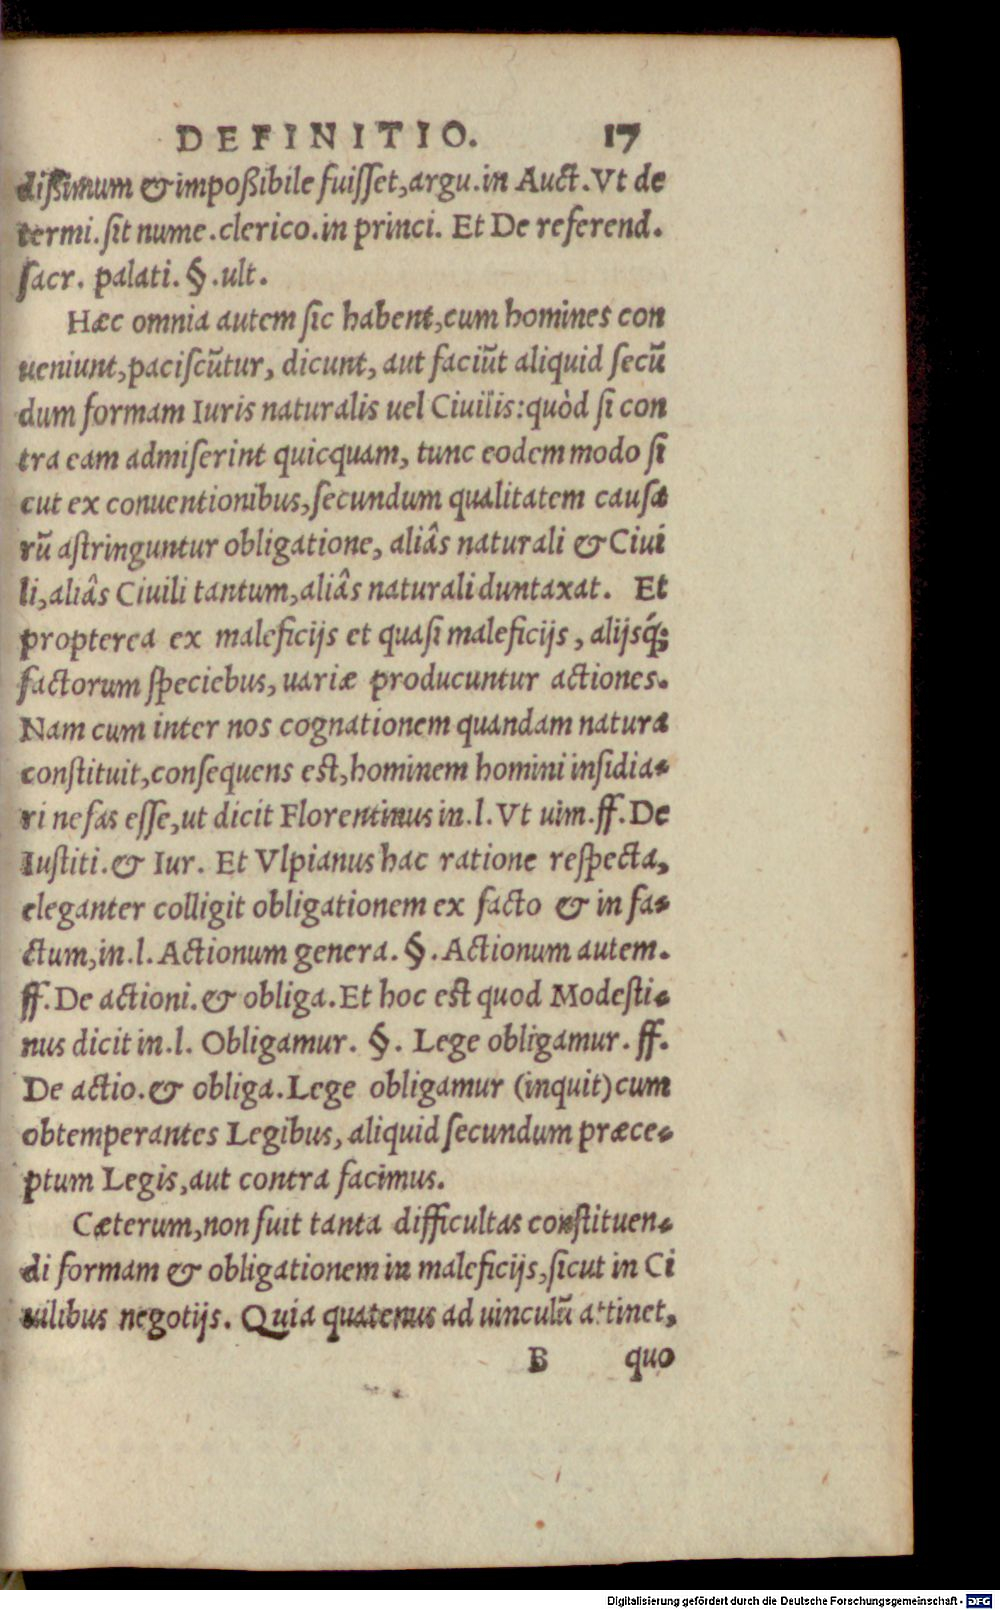 DEFINITIO. 17
dißimum & impoßibile fuisset, argu. in Auct. Vt de
termi. sit nume. clerico. in princi. Et De referend.
sacr. palati. §. ult.
Hæc omnia autem sic habent, cum homines con
ueniunt, paciscũtur, dicunt, aut faciũt aliquid secũ
dum formam Iuris naturalis uel Ciuilis: quòd si con
tra eam admiserint quicquam, tunc eodem modo si
cut ex conuentionibus, secundum qualitatem causa
rũ astringuntur obligatione, aliâs naturali & Ciui
li, aliâs Ciuili tantum, aliâs naturali duntaxat. Et
propterea ex maleficijs et quasi maleficijs, alijsq́;
factorum speciebus, uariæ producuntur actiones.
Nam cum inter nos cognationem quandam natura
constituit, consequens est, hominem homini insidia-
ri nefas esse, ut dicit Florentinus in. l. Vt uim. ff. De
Iustiti. & Iur. Et Vlpianus hac ratione respecta,
eleganter colligit obligationem ex facto & in fa-
ctum, in. l. Actionum genera. §. Actionum autem.
ff. De actioni. & obliga. Et hoc est quod Modesti-
nus dicit in. l. Obligamur. §. Lege obligamur. ff.
De actio. & obliga. Lege obligamur (inquit) cum
obtemperantes Legibus, aliquid secundum præce-
ptum Legis, aut contra facimus.
Cæterum, non fuit tanta difficultas constituen-
di formam & obligationem in maleficijs, sicut in Ci
uilibus negotijs. Quia quatenus ad uinculũ attinet,
B quo
Digitalisierung gefördert durch die Deutsche Forschungsgemeinschaft - DFG